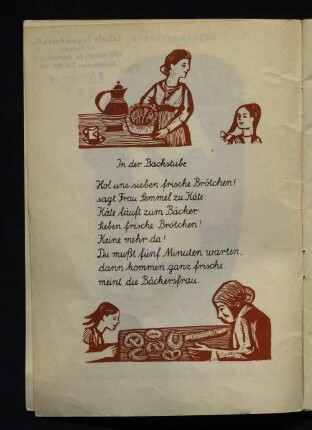 In der Backstube
Hol uns sieben frische Brötchen!
sagt Frau Semmel zu Käte
Käte läuft zum Bäcker
Sieben frische Brötchen!
Keine mehr da!
Du mußt fünf Minuten warten,
dann kommen ganz frische,
meint die Bäckersfrau.